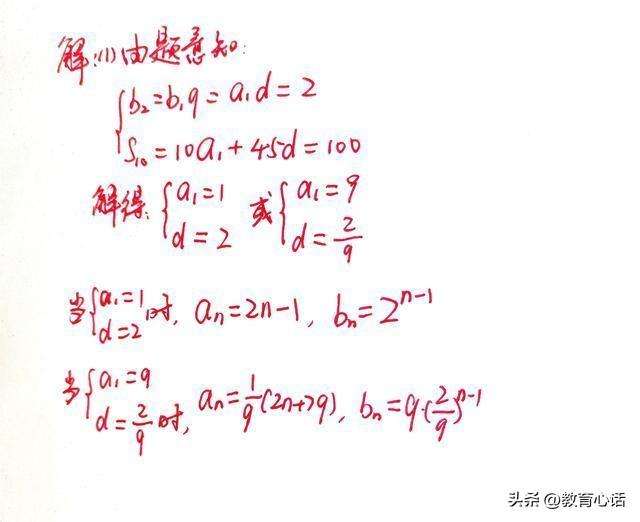 解:(1)由题意知:
{b₂=b₁q=a₁d=2
S₁₀=10a₁+45d=100
解得:{a₁=1 d=2 或{a₁=9 d=2/9
当{a₁=1 d=2时, aₙ=2n-1, bₙ=2ⁿ⁻¹
当{a₁=9 d=2/9时, aₙ=1/9(2n+79), bₙ=9·(2/9)ⁿ⁻¹
头条 @教育心话